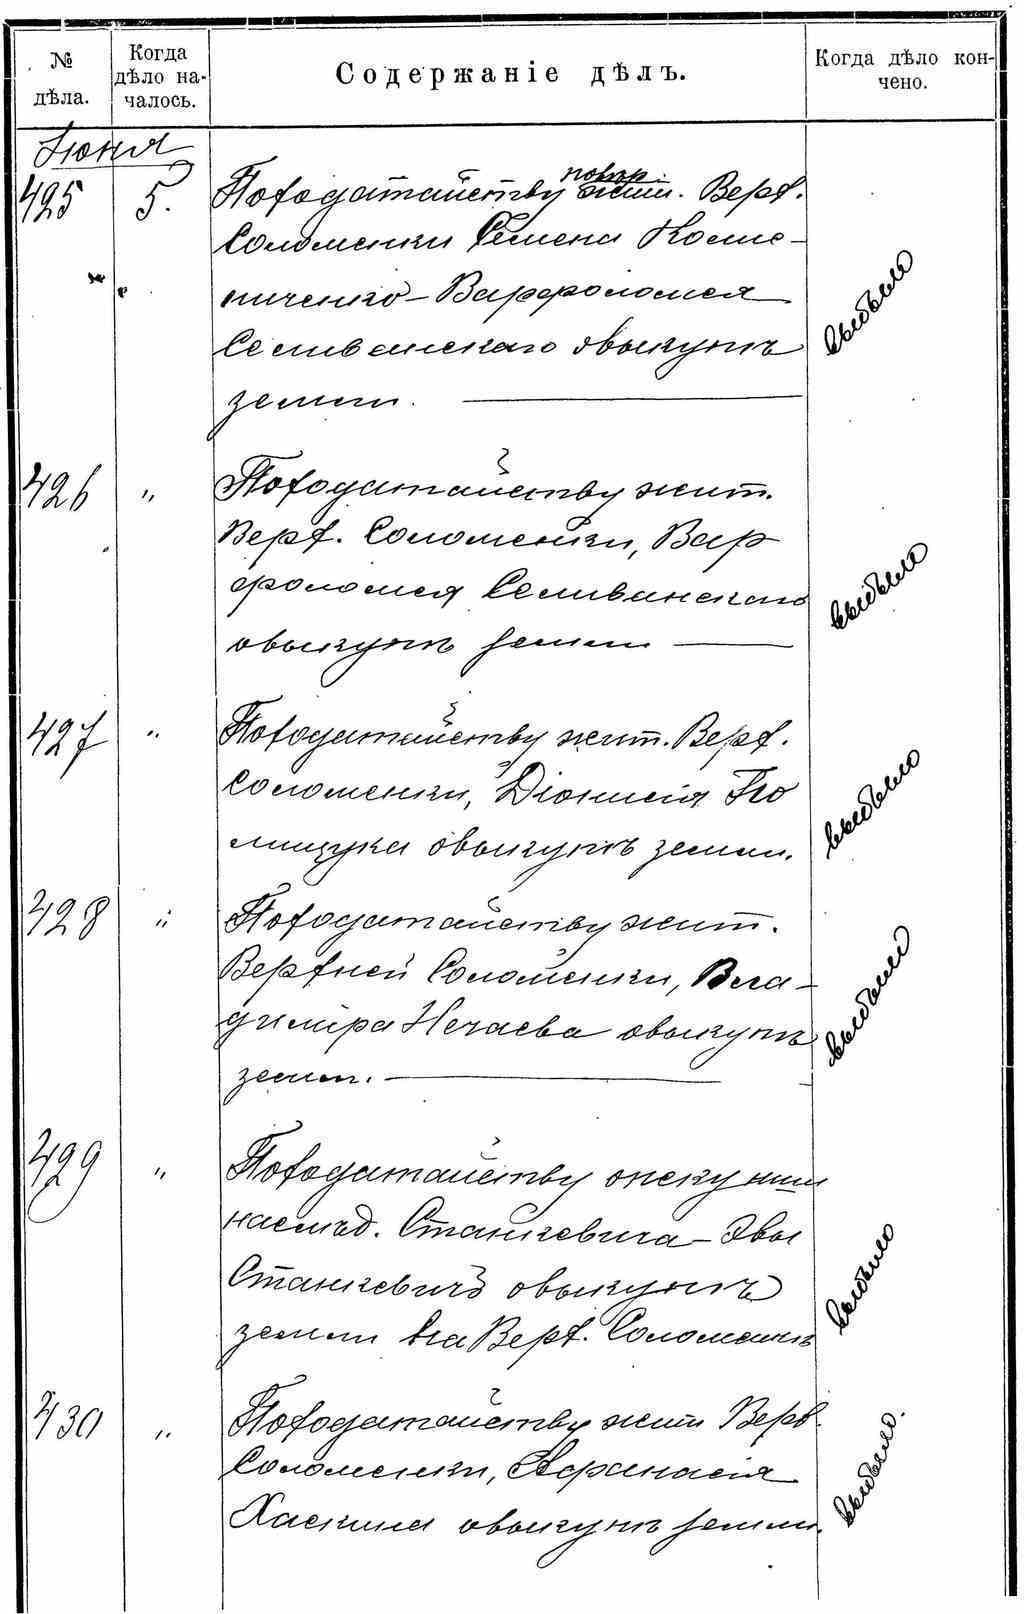 № дѣла.
Когда дѣло на-
чалось.
Содержаніе дѣлъ.
Когда дѣло кон-
чено.
Іюня
425 5. По ходатайству повѣр. жит. Верх.
Соломенки Семена
ниченко - Варфоломея
Селиванскаго о выкупѣ
земли.
выбыло
426 " По ходатайству жит.
Верх. Соломенки, Вар
фоломея Селиванскаго
о выкупѣ земли
выбыло
427 " По ходатайству жит. Верх.
Соломенки, Діонисія
о выкупѣ земли.
выбыло
428 " По ходатайству жит.
Верхней Соломенки, Вла-
диміра Нечаева о выкупѣ
земли.
выбыло
429 " По ходатайству опекунши
наслѣд. Станкевича - Эвы
Станкевичъ о выкупѣ
земли на Верх. Соломенкѣ
выбыло
430 " По ходатайству жит Верх.
Соломенки, Афанасія
Хаскина о выкупѣ земли.
выбыло.